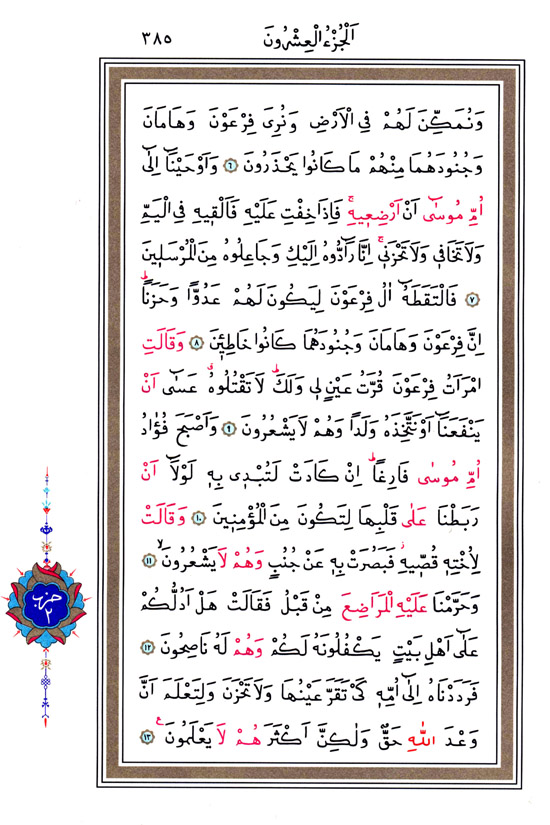 اَلْجُزْءُ الْعِشْرُونَ ٣٨٥
وَنُمَكِّنَ لَهُمْ فِي الْاَرْضِ وَنُرِيَ فِرْعَوْنَ وَهَامَانَ
وَجُنُودَهُمَا مِنْهُمْ مَا كَانُوا يَحْذَرُونَ ٦ وَاَوْحَيْنَٓا اِلٰٓى
اُمِّ مُوسٰٓى اَنْ اَرْضِعِيهِۚ فَاِذَا خِفْتِ عَلَيْهِ فَاَلْقِيهِ فِي الْيَمِّ
وَلَا تَخَافِي وَلَا تَحْزَنِيۚ اِنَّا رَٓادُّوهُ اِلَيْكِ وَجَاعِلُوهُ مِنَ الْمُرْسَلِينَ
٧ فَالْتَقَطَهُٓ اٰلُ فِرْعَوْنَ لِيَكُونَ لَهُمْ عَدُوًّا وَحَزَنًاۜ
اِنَّ فِرْعَوْنَ وَهَامَانَ وَجُنُودَهُمَا كَانُوا خَاطِـِٔينَ ٨ وَقَالَتِ
امْرَاَتُ فِرْعَوْنَ قُرَّتُ عَيْنٍ لِي وَلَكَۜ لَا تَقْتُلُوهُۗ عَسٰٓى اَنْ
يَنْفَعَنَٓا اَوْ نَتَّخِذَهُ وَلَدًا وَهُمْ لَا يَشْعُرُونَ ٩ وَاَصْبَحَ فُؤٰادُ
اُمِّ مُوسٰى فَارِغًاۜ اِنْ كَادَتْ لَتُبْدِي بِهٖ لَوْلَٓا اَنْ
رَبَطْنَا عَلٰى قَلْبِهَا لِتَكُونَ مِنَ الْمُؤْمِنِينَ ١٠ وَقَالَتْ
لِاُخْتِهٖ قُصِّيهِۘ فَبَصُرَتْ بِهٖ عَنْ جُنُبٍ وَهُمْ لَا يَشْعُرُونَۙ ١١
وَحَرَّمْنَا عَلَيْهِ الْمَرَاضِعَ مِنْ قَبْلُ فَقَالَتْ هَلْ اَدُلُّكُمْ
عَلٰٓى اَهْلِ بَيْتٍ يَكْفُلُونَهُ لَكُمْ وَهُمْ لَهُ نَاصِحُونَ ١٢
فَرَدَدْنَاهُ اِلٰٓى اُمِّهٖ كَيْ تَقَرَّ عَيْنُهَا وَلَا تَحْزَنَ وَلِتَعْلَمَ اَنَّ
وَعْدَ اللّٰهِ حَقٌّ وَلٰكِنَّ اَكْثَرَهُمْ لَا يَعْلَمُونَ۟ ١٣
حزب
٢